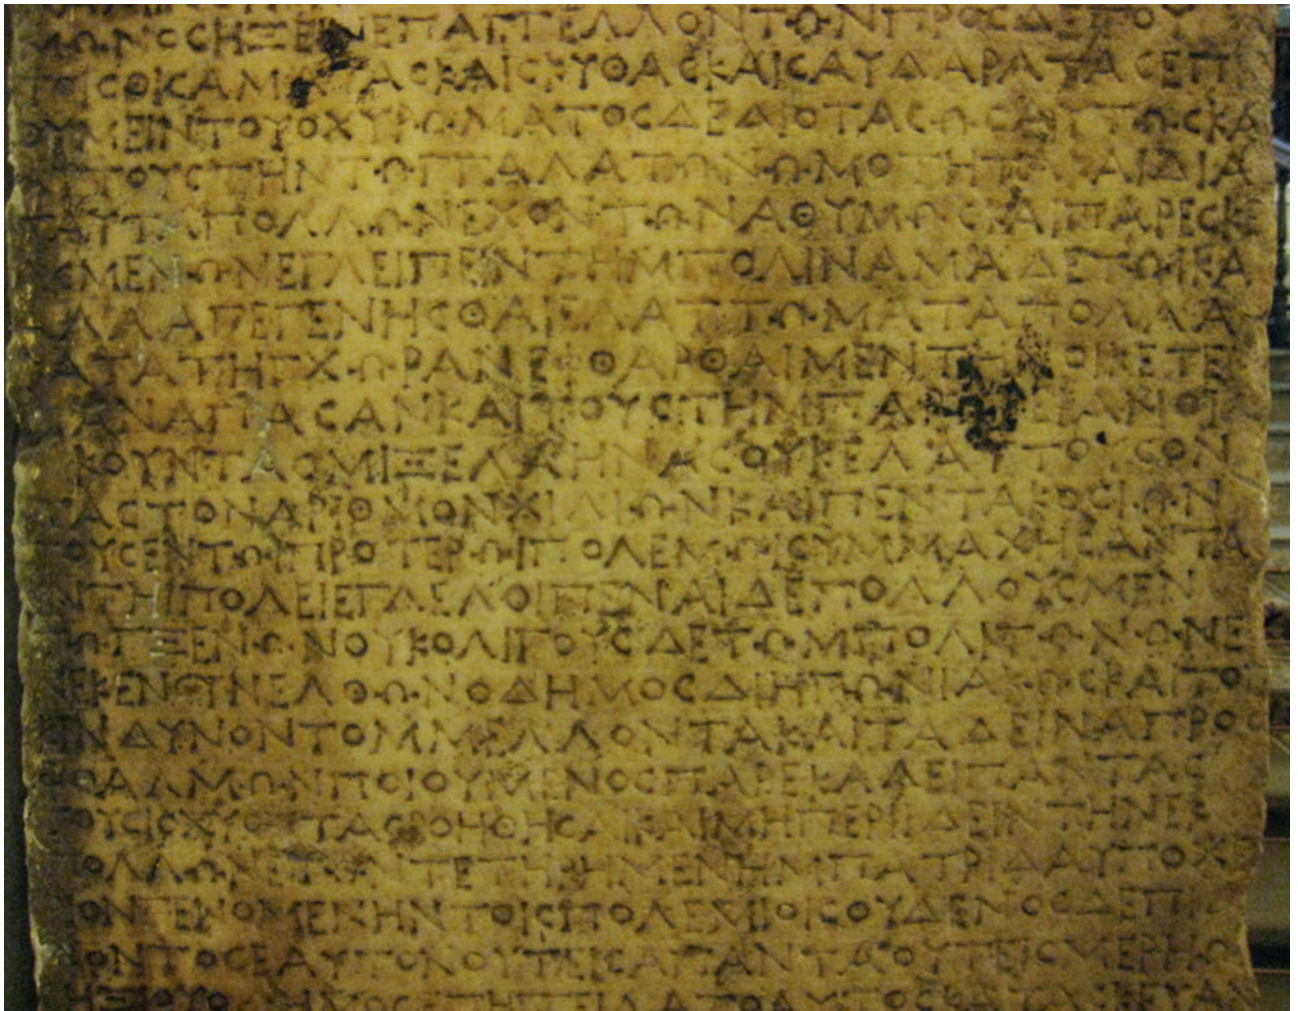 ΜΩΝΟΣΗΞΕΙΝΕΠΑΓΓΕΛΛΟΝΤΩΝΠΡΟΣΔΕΤΟΥ
ΤΟΙΣΘΙΣΑΜΑΤΑΣΚΑΙΣΚΥΘΑΣΚΑΙΣΑΥΔΑΡΑΤΑΣΕΠΙ
ΘΥΜΕΙΝΤΟΥΟΧΥΡΩΜΑΤΟΣΔΕΔΙΟΤΑΣΩΣΑΥΤΩΣΚΑ
ΑΥΤΟΥΣΤΗΝΤΩΓΓΑΛΑΤΩΝΩΜΟΤΗΤΑΚΑΙΔΙΑ
ΤΑΥΤΑΠΟΛΛΩΝΕΧΟΝΤΩΝΑΘΥΜΩΣΚΑΙΠΑΡΕΣΚΕ
ΑΣΜΕΝΩΝΕΓΛΕΙΠΕΙΝΤΗΜΠΟΛΙΝΑΜΑΔΕΤΩΙΚΑ
ΑΛΛΑΓΕΓΕΝΗΣΘΑΙΕΛΑΤΤΩΜΑΤΑΠΟΛΛΑ
ΚΑΤΑΤΗΓΧΩΡΑΝΕΦΘΑΡΘΑΙΜΕΝΤΗΝΟΙΚΕΤΕ
ΑΝΑΠΑΣΑΝΚΑΙΤΟΥΣΤΗΜΠΑΡΩΡΕΙΑΝΟΙ
ΚΟΥΝΤΑΣΜΙΞΕΛΛΗΝΑΣΟΥΚΕΛΑΤΤΟΥΣΟΝ
ΤΑΣΤΟΝΑΡΙΘΜΟΝΧΙΛΙΩΝΚΑΙΠΕΝΤΑΚΟΣΙΩΝ
ΤΟΥΣΕΝΤΩΙΠΡΟΤΕΡΩΙΠΟΛΕΜΩΙΣΥΜΜΑΧΗΣΑΝΤΑ
ΕΝΤΗΙΠΟΛΕΙΕΓΛΕΛΟΙΠΕΝΑΙΔΕΠΟΛΛΟΥΣΜΕΝ
ΤΩΓΞΕΝΩΝΟΥΚΟΛΙΓΟΥΣΔΕΤΩΜΠΟΛΙΤΩΝΩΝΕ
ΝΕΚΕΝΣΥΝΕΛΘΩΝΟΔΗΜΟΣΔΙΗΓΩΝΙΑΚΩΣΚΑΙΤΟ
ΚΙΝΔΥΝΟΝΤΟΜΜΕΛΛΟΝΤΑΚΑΙΤΑΔΕΙΝΑΠΡΟΟ
ΦΘΑΛΜΩΝΠΟΙΟΥΜΕΝΟΣΠΑΡΕΚΑΛΕΙΠΑΝΤΑΣ
ΤΟΥΣΙΣΧΥΟΝΤΑΣΒΟΗΘΗΣΑΙΚΑΙΜΗΠΕΡΙΙΔΕΙΝΤΗΝΕΚ
ΠΟΛΛΩΝΕΤΩΝΤΕΤΗΡΗΜΕΝΗΜΠΑΤΡΙΔΑΥΠΟΧΕ
ΙΟΝΓΕΝΟΜΕΝΗΝΤΟΙΣΠΟΛΕΜΙΟΙΣΟΥΔΕΝΟΣΔΕΠΙ
ΔΟΝΤΟΣΕΑΥΤΟΝΟΥΤΕΙΣΑΠΑΝΤΑΟΥΤΕΙΣΜΕΡΗΩ
ΗΞΙΟΥΟΔΗΜΟΣΕΠΗΓΓΕΙΛΑΤΟΑΥΤΟΣΚΑΤΑΣΚΕΥΑΝ